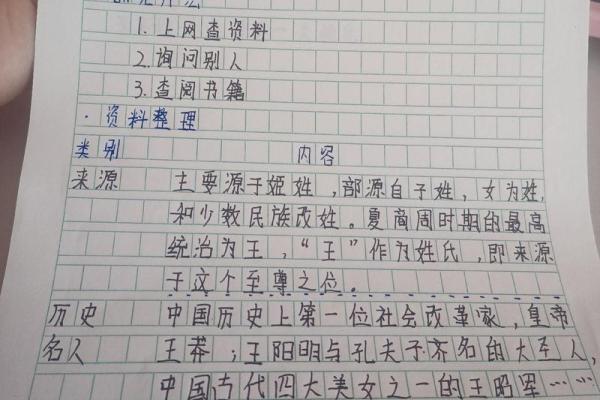 1. 上网查资料
2. 询问别人
3. 查阅书籍
·资料整理
类别 内容
来源 主要源于姬姓，部源自子姓，女为姓，
和少数民族改姓。夏商周时期的最高
统治为王，“王”作为姓氏，即来源
于这个至尊之位。
历史 中国历史上第一位社会改革家，皇帝
名人 王莽；王阳明与孔夫子齐名的大圣人，
中国古代四大美女之一的王昭军……